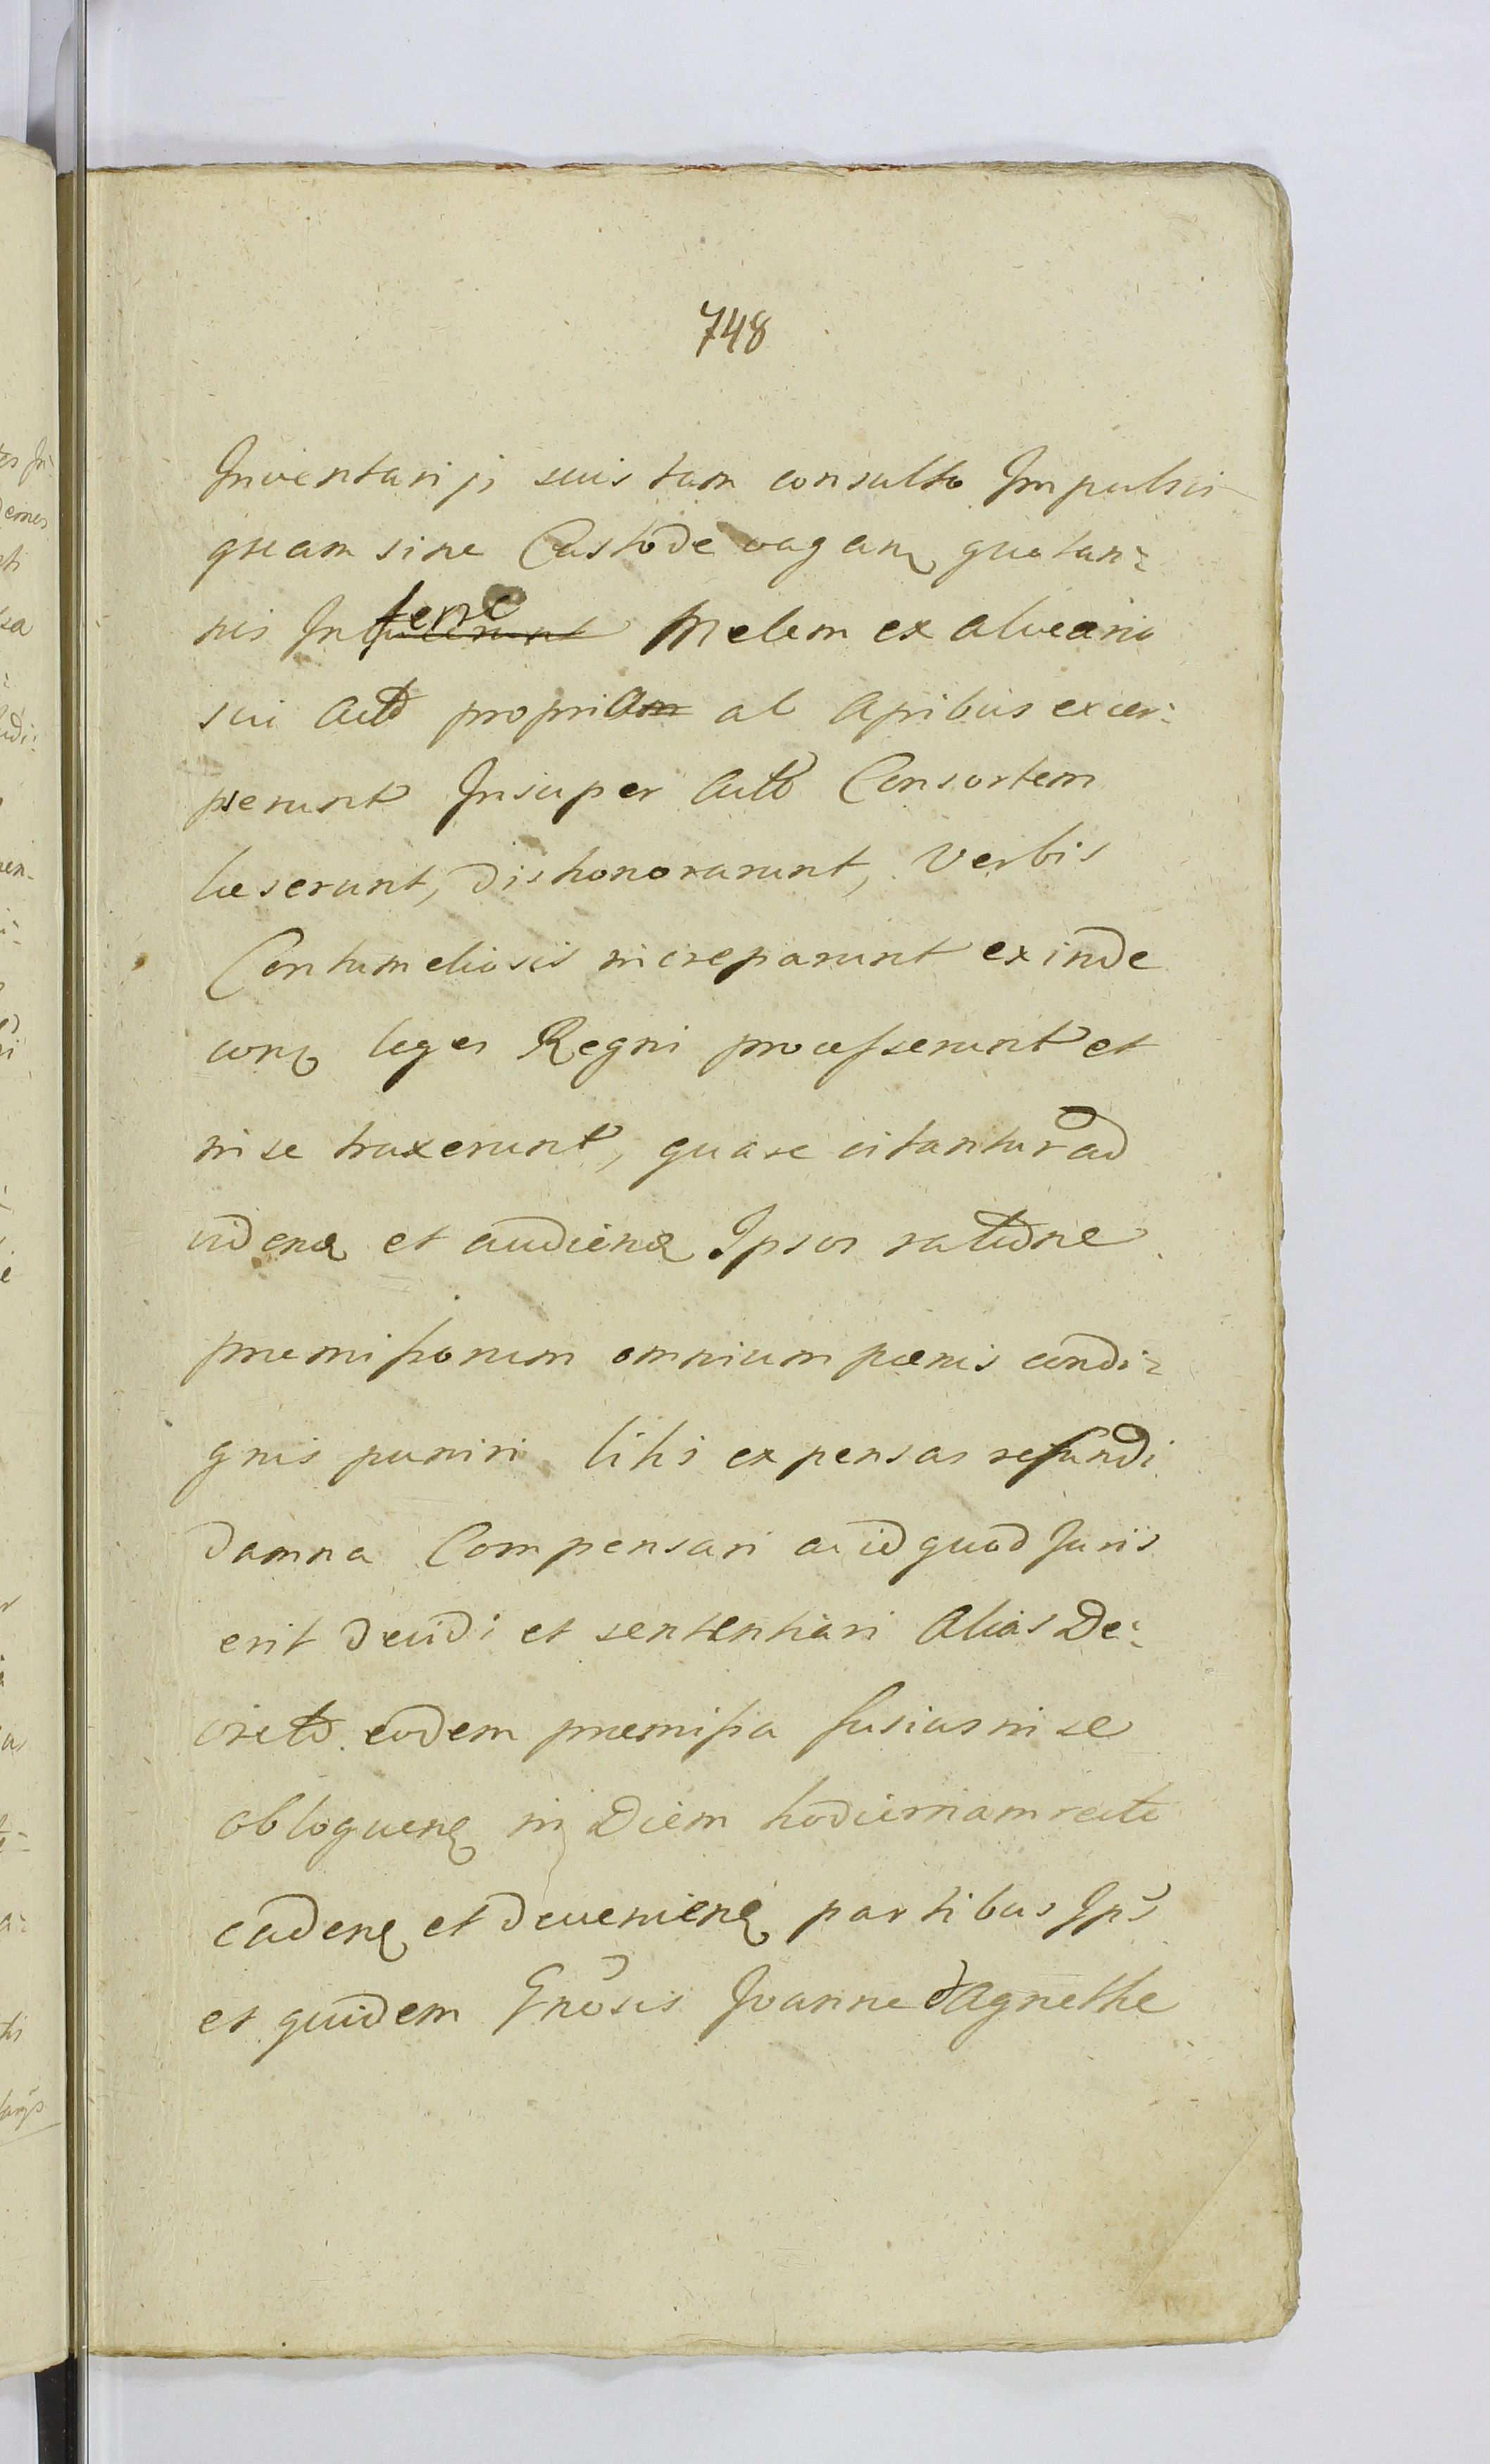 748
Inventarijs suis tam consulto Impulsis
quam sine Custode vagan quotan:
nis In ferre Melem ex alveario
sui Acto propria ab Apibus excer:
pserunt Insuper Acto Consortem
læserunt, dishonorarunt, verbis
Contumeliosis increparunt exinde
con leges Regni processerunt et
in se traxerunt, quare citantur ad
viden et audien Ipsos ratione
præmissorum omnium pænis condi:
gnis puniri litis expensas refundi
damna Compensari ac id quod Juris
erit decidi et sententiari Alias De:
creto eodem præmissa fusius in se
obloquen in Diem hodiernam recte
caden et devenien partibus Ips
et quidem Gnosis Joanne et Agnethe